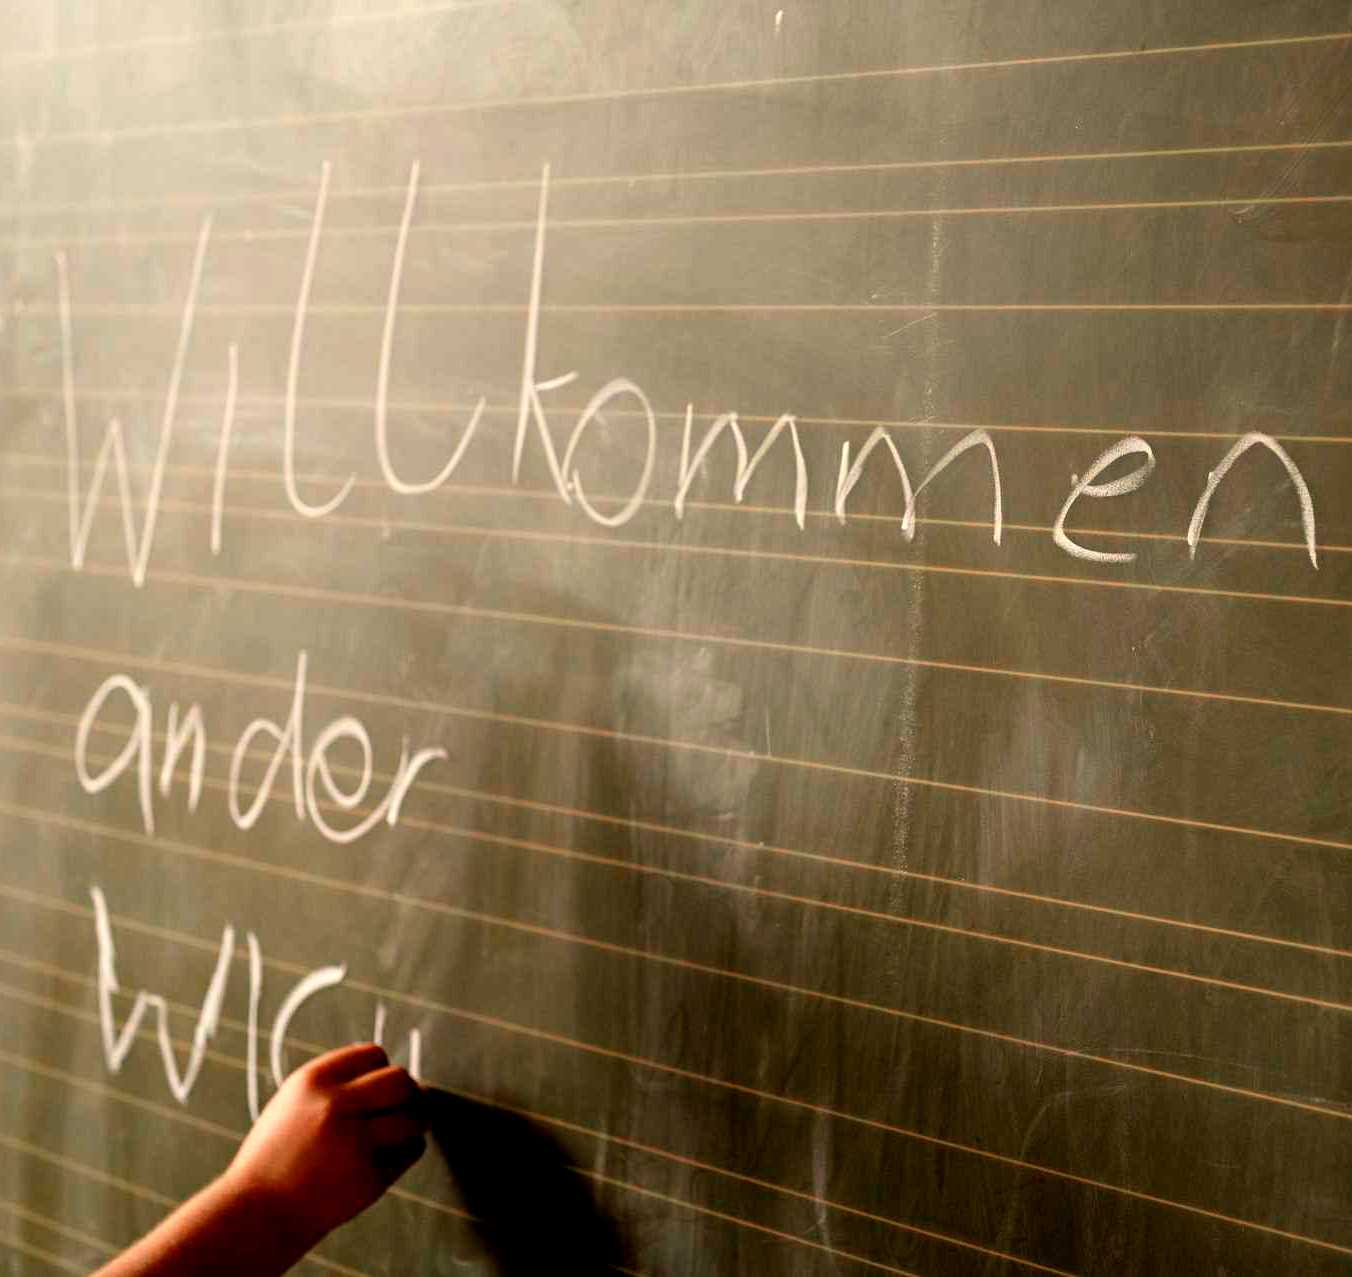 Willkommen
an der